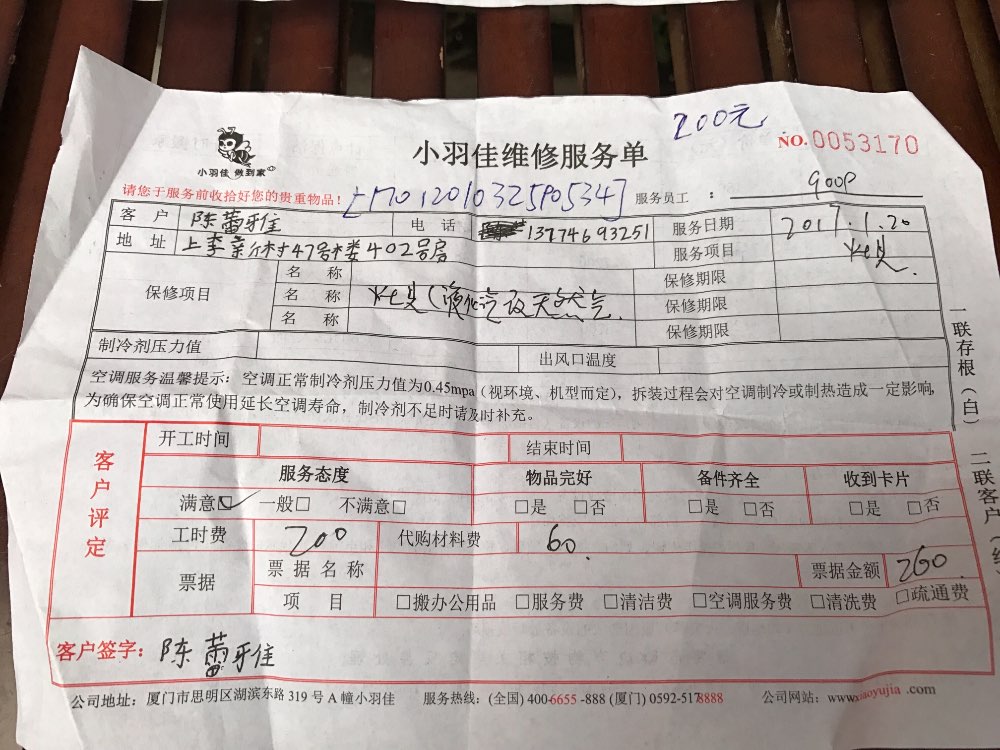 200元
小羽佳 做到家
小羽佳维修服务单
NO.0053170
请您于服务前收拾好您的贵重物品！
服务员工 ：
客 户 陈蕾雅 电 话 13774693251 服务日期 2017.1.20
地 址 47号楼402号房 服务项目 灶具.
保修项目 名 称 保修期限
名 称 灶具（液化汽改天然气. 保修期限
名 称 保修期限
制冷剂压力值 出风口温度
空调服务温馨提示：空调正常制冷剂压力值为0.45mpa（视环境、机型而定），拆装过程会对空调制冷或制热造成一定影响，
为确保空调正常使用延长空调寿命，制冷剂不足时请及时补充。
一联存根（白）
二联客户
客户评定
开工时间 结束时间
服务态度 物品完好 备件齐全 收到卡片
满意☑ 一般□ 不满意□ □是 □否 □是 □否 □是 □否
工时费 200 代购材料费 60.
票据 票据名称 票据金额 260.
项 目 □搬办公用品 □服务费 □清洁费 □空调服务费 □清洗费 □疏通费
客户签字：陈蕾雅
公司地址：厦门市思明区湖滨东路 319 号 A 幢小羽佳 服务热线：(全国) 400-6655-888 (厦门) 0592-5178888 公司网站：www.xiaoyujia.com